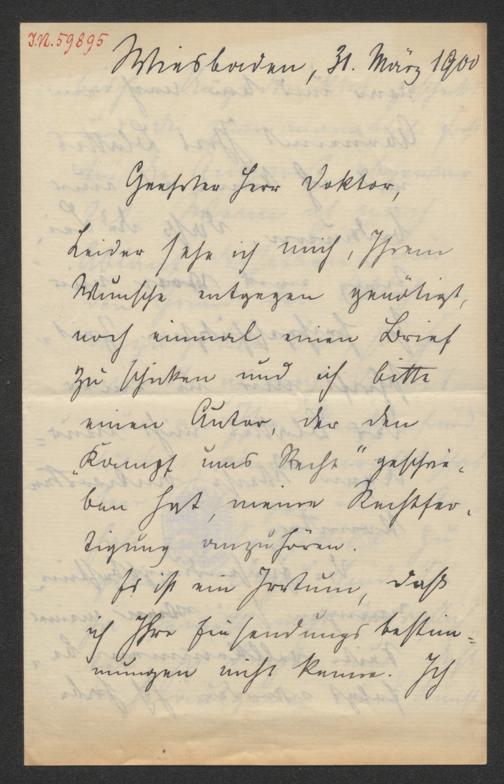 I.N. 59895
Wiesbaden, 31. März 1900
Geehrter Herr Doktor,
Leider sehe ich mich, Ihrem
Wunsche entgegen genötigt,
noch einmal einen Brief
zu schicken und ich bitte
einen Autor, der den
„Kampf ums Recht“ geschrie-
ben hat, meine Rechtfer-
tigung anzuhören.
Es ist ein Irrtum, daß
ich Ihre Einsendungsbestim-
mungen nicht kenne. Ich